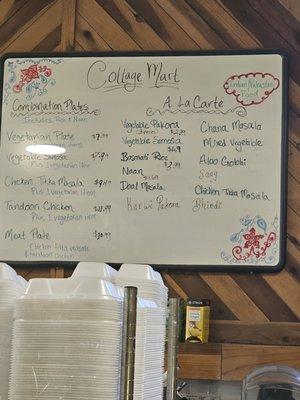 Collage Mart
Indian/Pakistani
Food
Combination Plates
Includes Rice & Naan
Vegetarian Plate
Vegetable Samosa
Plus 1 Vegetarian Item
Chicken Tikka Masala
Plus 1 vegetarian Item
Tandoori Chicken
Plus 1 vegetarian item
Meat Plate
Chicken tikka masala
& tandoori chicken
A La Carte
Vegetable Pakora
Vegetable Samosa
Basmati Rice
Naan
Daal Masala
Karwe Pakora
Chana Masala
Mixed Vegetable
Aloo Gobhi
Saag
Chicken Tikka Masala
Bhindi